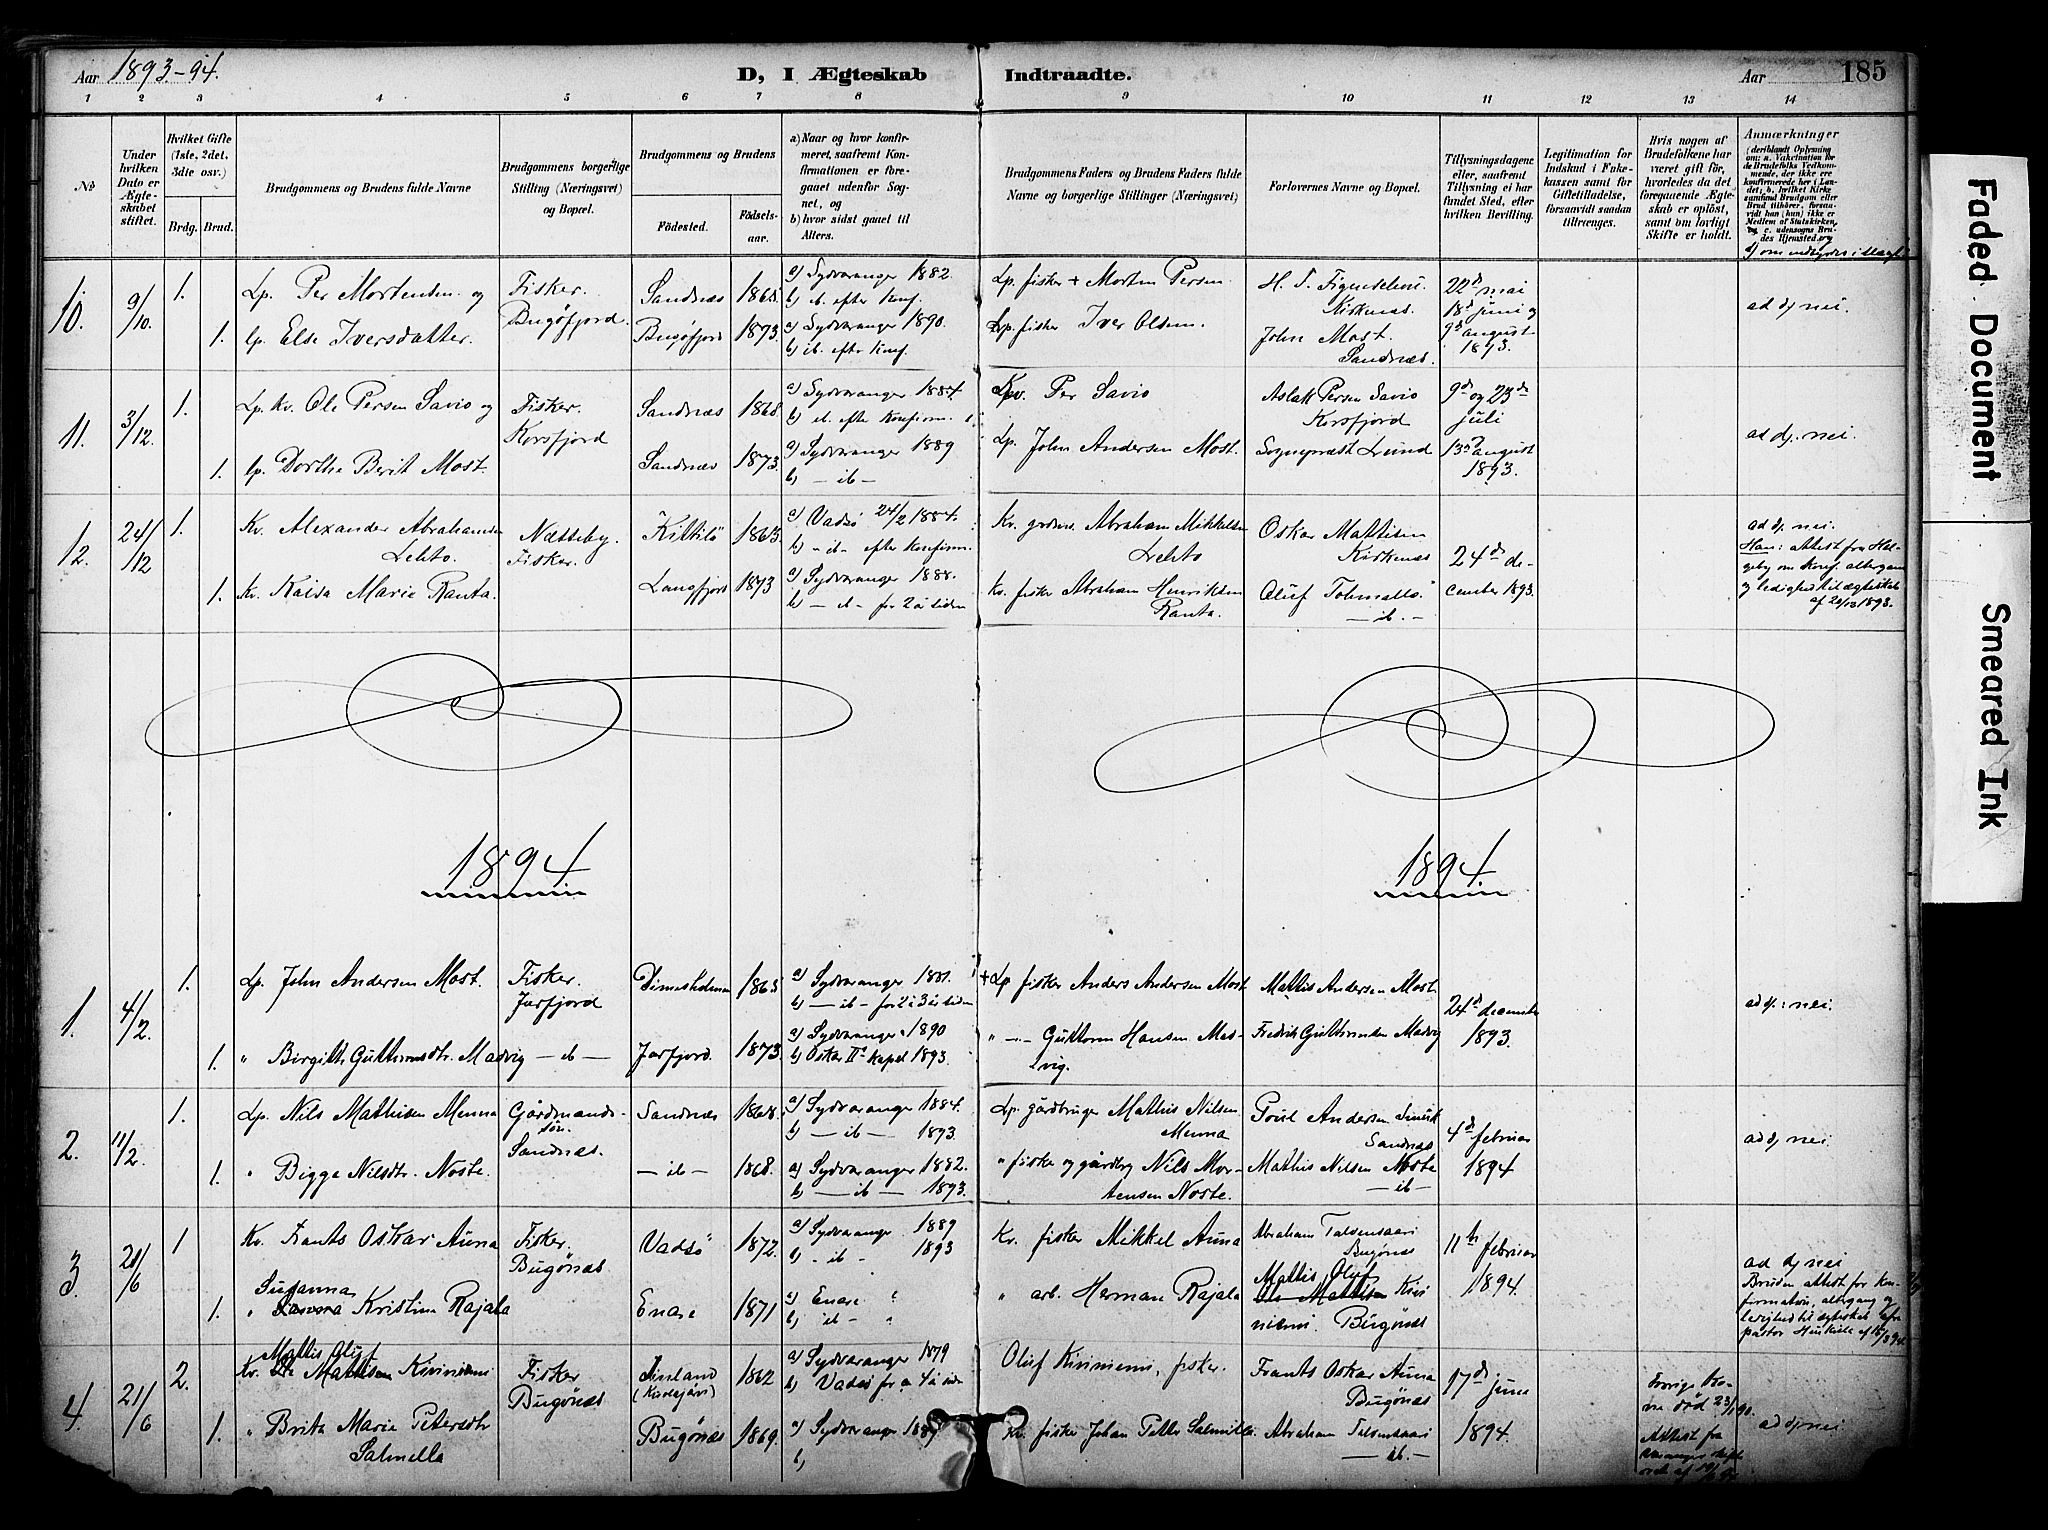 Aar 1893-94.
D, I Ægteskab Indtraadte.
Aar 185
1 2 3 4 5 6 7 8 9 10 11 12 13 14
No
Under hvilken Dato er Ægteskabet stiftet.
Hvilket Gifte (1ste, 2det, 3die osv.)
Brdg. Brud.
Brudgommens og Brudens fulde Navne
Brudgommens borgerlige Stilling (Næringsvei) og Bopæl.
Brudgommens og Brudens
Fødested.
Fødselsaar.
a) Naar og hvor konfirmeret, saafremt Konfirmationen er foregaaet udenfor Sognet, og
b) hvor sidst gaaet til Alters.
Brudgommens Faders og Brudens Faders fulde Navne og borgerlige Stillinger (Næringsvei)
Forlovernes Navne og Bopæl.
Tillysningsdagene eller, saafremt Tillysning ei har fundet Sted, efter hvilken Bevilling.
Legitimation for Indskud i Enkekassen samt for Giftetilladelse, forsaavidt saadan tiltrænges.
Hvis nogen af Brudefolkene har været gift før, hvorledes da det foregaaende Ægteskab er opløst, samt om lovligt Skifte er holdt.
Anmærkninger (deriblandt Oplysning om: a. Vakcination for de Brudefolks Vedkommende, der ikke ere konfirmerede her i Landet; b. hvilket Kirkesamfund Brudgom eller Brud tilhører, forsaavidt han (hun) ikke er Medlem af Statskirken, og c. udensogns Brudes Hjemsted. og
10. 9/10. 1. Lp. Per Mortensen og
Fisker. Bugøfjord.
Sandnæs 1865
a) Sydvaranger 1882.
b) ib. efter Konf.
Lp. fisker + Morten Persen
Kirkenæs.
22d mai 18d juni og 9d august 1893.
ad d) nei.
1. lp. Else Iversdatter.
Bugøfjord 1873.
a) Sydvaranger 1890.
b) ib. efter Konf.
Lp. fisker Iver Olsen.
John Most. Sandnæs.
11. 3/12. 1. Lp. Kv. Ole Persen Savio og
Fisker. Korsfjord
Sandnæs 1868.
a) Sydvaranger 1884.
b) ib. efter Konfirm.
Kv. Per Savio
Aslak Persen Savio Korsfjord
9d og 23de juli
13d august 1893.
ad d). nei.
1. lp. Dorthe Berit Most.
Sandnæs 1873.
a) Sydvaranger 1889
b) — ib —
Lp. John Andersen Most.
Sognepræst Lund
12. 24/12 1. Kv. Alexander Abrahamsen Lehto.
Næsseby. Fisker.
Kittilö 1865.
a) Vadsø 24/2 1884.
b) - ib - efter Konfirm.
Kv. Abraham Mikkelsen Lehto
Oskar Mattisen Kirkenæs
24de december 1893.
ad d) nei.
Han: attest fra
om Konf. altergang og ledighed til ægteskab af
1. Kv. Kaisa Marie Ranta.
Langfjord 1873
a) Sydvaranger 1888.
b) — ib — for 2 år siden
Kv. fisker Abraham Henriksen Ranta.
Oluf — ib. —
1894 1894
1. 4/2. 1. Lp. John Andersen Most.
Fisker. Jarfjord
1865
a) Sydvaranger 1881.
b) — ib — for 2 à 3 år siden
+ Lp fisker Anders Andersen Most
Mathis Andersen Most.
24d december 1893.
ad d). nei.
1. " Birgith Guttormsdtr. Madvig
— ib — Jarfjord. 1873.
a) Sydvaranger 1890
b) Oskar IIs kapel 1893.
" — Guttorm Hansen Madvig.
Fredrik Guttormsen Madvig
2. 11/2. 1. Lp. Nils Mathisen Menna
Gårdmandssøn. Sandnæs.
Sandnæs 1868.
a) Sydvaranger 1884.
b) — ib — 1893.
Lp. gårdbruger Mathis Nilsen Menna
Poul Andersen Sandnæs
4d februar 1894
ad d) nei.
1. " Bigge Nilsdtr. Noste.
— ib — 1868.
a) Sydvaranger 1882.
b) — ib — 1893.
" fisker og gårdbrg Nils Mortensen Noste.
Mathis Nilsen Noste — ib —
3. 21/6 1 Kv. Frants Oskar Auna
Fisker. Bugönæs
Vadsö 1872.
a) Sydvaranger 1889
b) - ib - 1893
Kv. fisker Mikkel Auna
Abraham Bugönæs
11te februar 1894.
ad d) nei
Bruden attest for konfirmation, altergang og ledighed til ægteskab fra pastor
1. " Susanna Kristina Rajala
Enare 1871
a) Enare "
b) ib - "
" arb. Herman Rajala
Mattis Oluf Kiviniemi. Bugönæs
4. 21/6 2. Kv. Mattis Oluf Kiviniemi
Fisker Bugönæs
Finland 1862
a) Sydvaranger 1879
b) Vadsø for 4 år siden
Oluf Kiviniemi, fisker.
Frants Oskar Auna Bugönæs
17d juni 1894.
Forrige Kone død 23/1 90.
Attest fra
ad d) nei
1. " Brita Marie Petersdtr Salmella
Bugönæs 1869.
a) Sydvaranger
b)
Kv. fisker Johan Petter Salmilla.
Abraham — ib. —
Faded Document
Smeared Ink